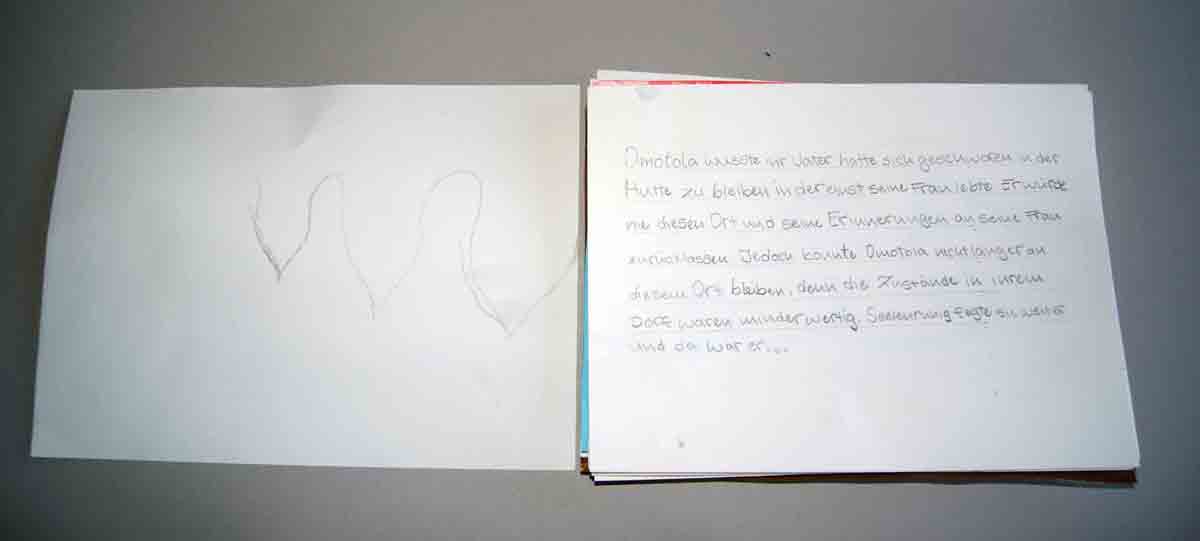 Omotola wusste ihr Vater hatte sich geschworen in der
Hütte zu bleiben in der einst seine Frau lebte Er würde
nie diesen Ort und seine Erinnerungen an seine Frau
zurücklassen Jedoch konnte Omotola nicht länger an
diesem Ort bleiben, denn die Zustände in ihrem
Dorf waren minderwertig. sie weiter
und da war er...